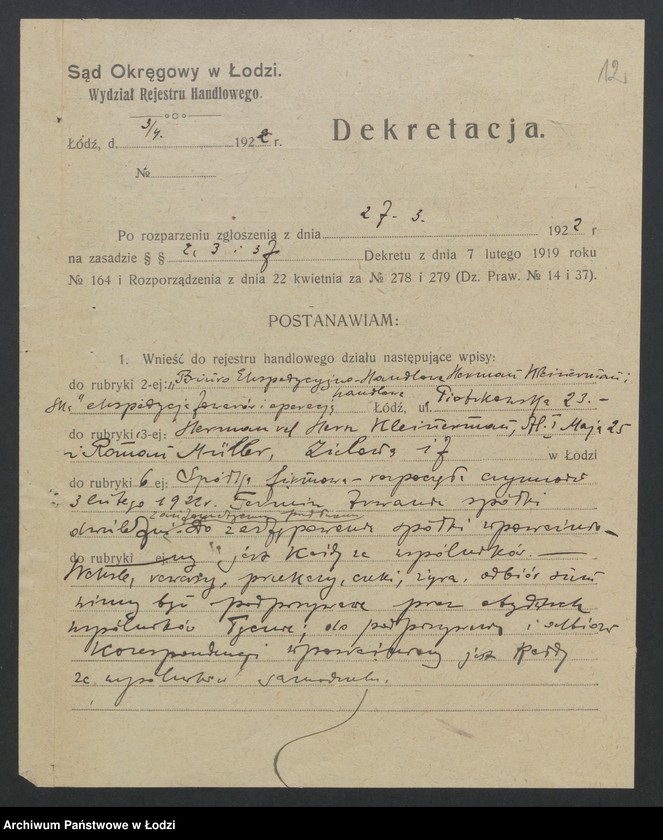 12.
Sąd Okręgowy w Łodzi.
Wydział Rejestru Handlowego.
Łódź, d. 3/4. 1922 r.
Dekretacja.
№
Po rozparzeniu zgłoszenia z dnia 27. 3. 1922 r
na zasadzie § § 2, 3 i 37 Dekretu z dnia 7 lutego 1919 roku
№ 164 i Rozporządzenia z dnia 22 kwietnia za № 278 i 279 (Dz. Praw. № 14 i 37).
POSTANAWIAM:
1. Wnieść do rejestru handlowego działu następujące wpisy:
do rubryki 2-ej: „Biuro Ekspedycyjno-Handlowe Herman Kleinerman i
Ska" ekspedycja towarów i operacje handlowe Łódź, ul. Piotrkowska 23. –
do rubryki 3-ej: Herman vel Hersz Kleinerman, Al. I Maja 25
i Roman Müller, w Łodzi
do rubryki 6 ej: Spółka firmowa – rozpoczęła czynność
3 lutego 1922 r. Termin trwania spółki
do zastępowania spółki upoważnio–
do rubryki ej: ny jest każdy ze wspólników. —
Weksle, czeki, żyra, odbiór sum
winny być podpisywane przez obydwóch
wspólników łącznie; do podpisywania i odbioru
korespondencji upoważniony jest każdy
ze wspólników samodzielnie.
Archiwum Państwowe w Łodzi